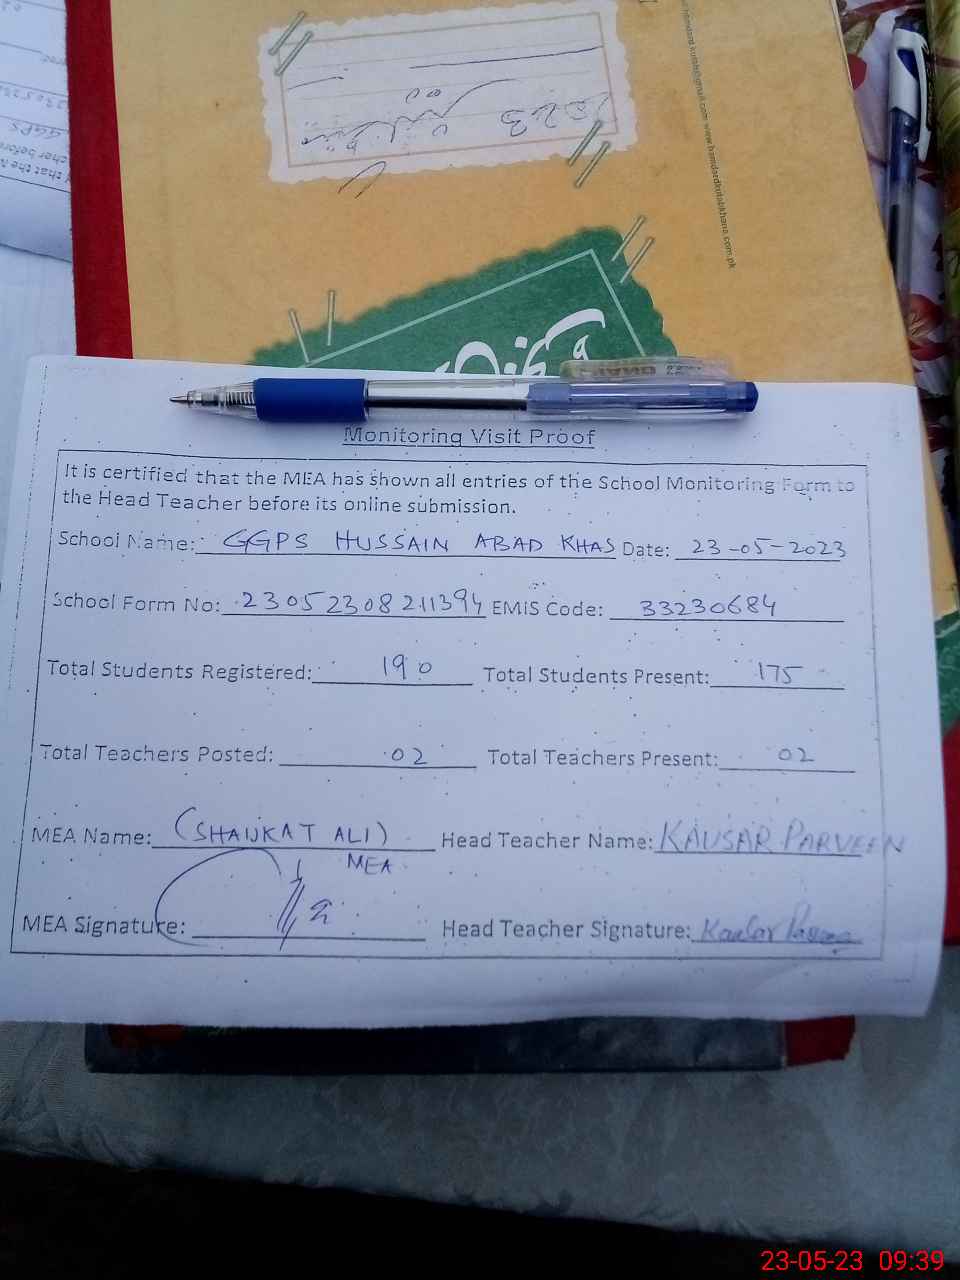 hamdard kutab@gmail.com www.hamdardkutabkhana.com.pk
2023
Monitoring Visit Proof
It is certified that the MEA has shown all entries of the School Monitoring Form to
the Head Teacher before its online submission.
School Name: GGPS HUSSAIN ABAD KHAS Date: 23-05-2023
School Form No: 23052308211394 EMIS Code: 33230684
Total Students Registered: 190 Total Students Present: 175
Total Teachers Posted: 02 Total Teachers Present: 02
MEA Name: (SHAUKAT ALI) Head Teacher Name: KAUSAR PARVEEN
MEA
MEA Signature: Head Teacher Signature: Kausar Parveen
23-05-23 09:39